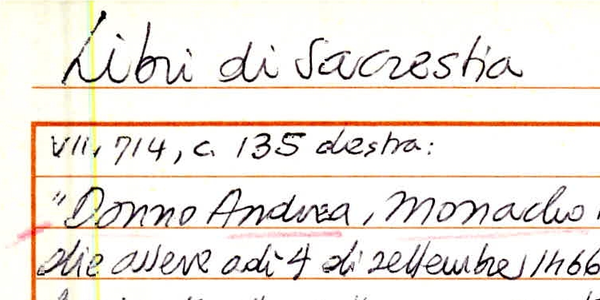 Libri di Sacrestia
VII, 714, c. 135 destra:
"Donno Andrea, Monacho
die avere adì 4 di settembre 1466